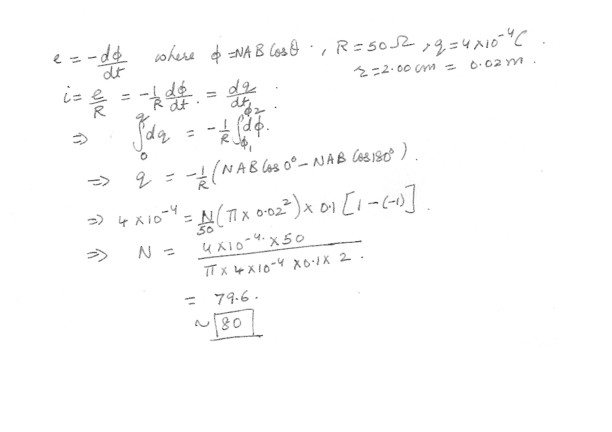 e = -dϕ/dt where ϕ = NAB Cosθ ., R = 50Ω, q = 4×10⁻⁴C.
r = 2.00 cm = 0.02m.
i = e/R = -1/R dϕ/dt. = dq/dt.
⇒ ∫₀^q dq = -1/R ∫_ϕ₁^ϕ₂ dϕ.
⇒ q = -1/R (NAB Cos 0° - NAB Cos 180°).
⇒ 4×10⁻⁴ = N/50 (π × 0.02²) × 0.1 [1-(-1)].
⇒ N = 4×10⁻⁴ × 50 / π × 4×10⁻⁴ × 0.1 × 2.
= 79.6.
~ 80